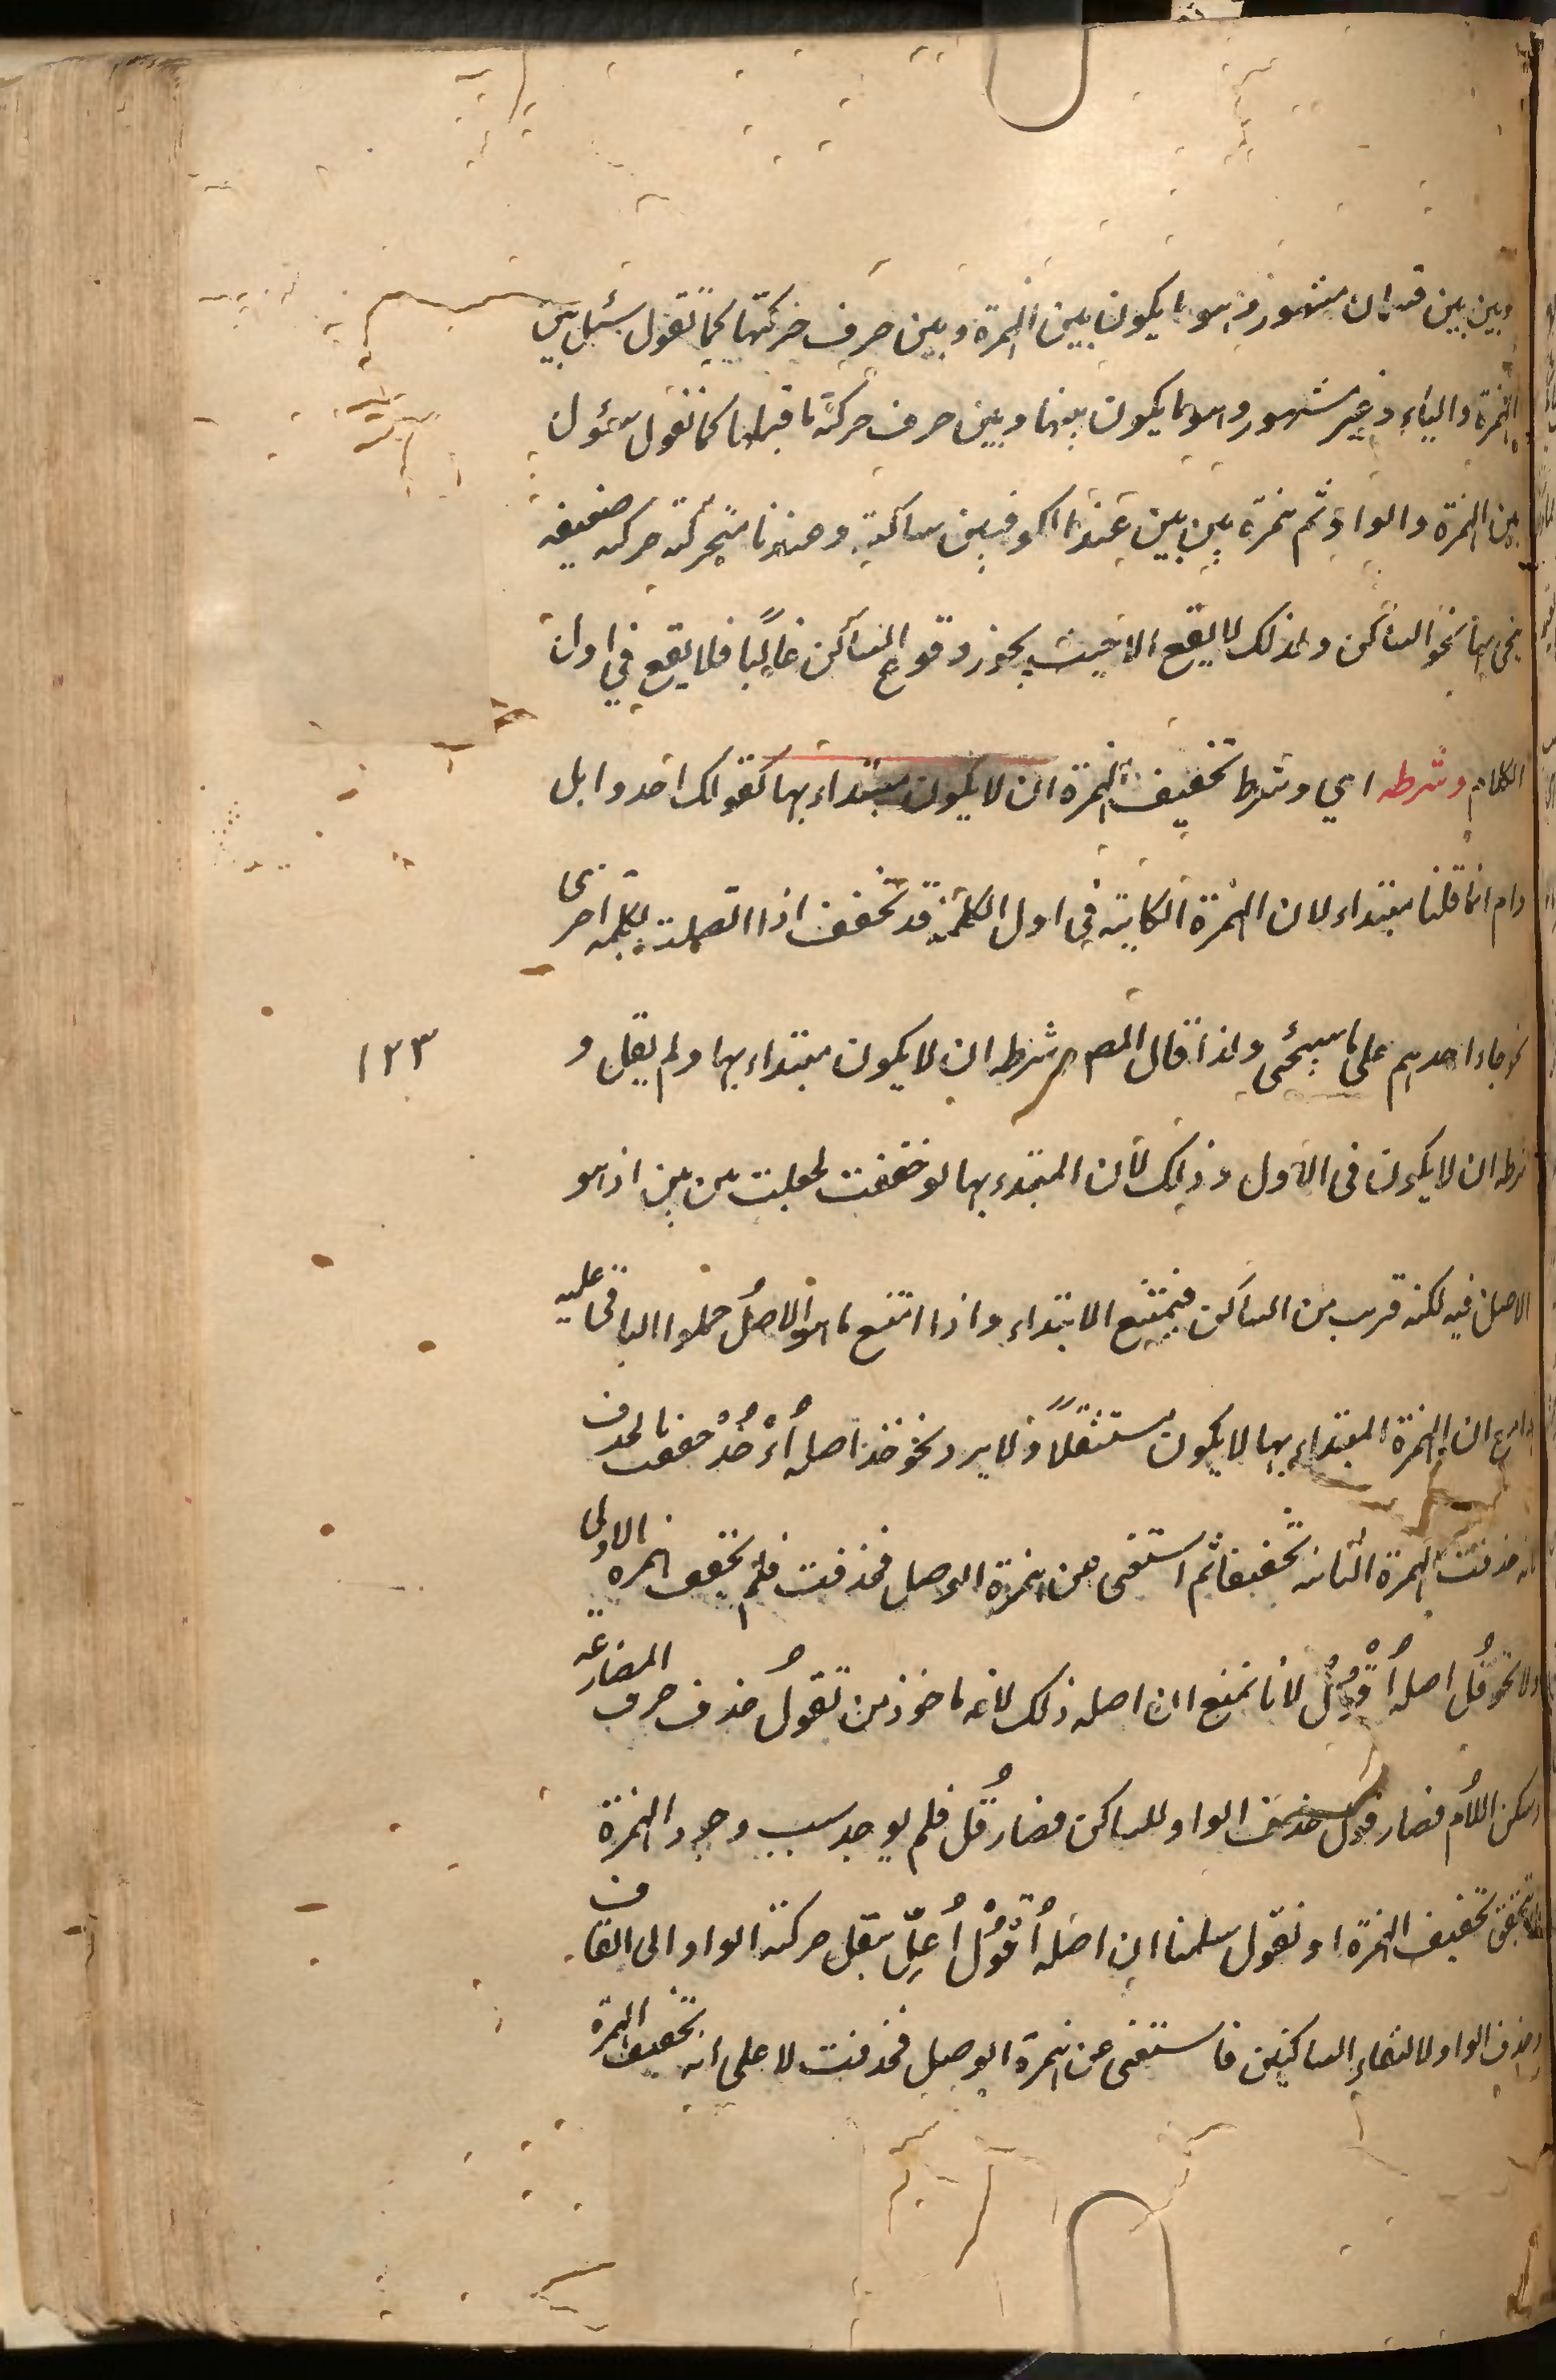 وبين بين قسمان مشهور وهو ما يكون بين الهمزة وبين حرف حركتها كما تقول سئل بين
الهمزة والياء وغير مشهور وهو ما يكون بينها وبين حرف حركة ما قبلها كما تقول سؤل
بين الهمزة والواو ثم همزة بين بين عند الكوفيين ساكنة وعندنا متحركة حركة ضعيفة
ينحى بها نحو الساكن ولذلك لا يقع الا حيث يجوز وقوع الساكن غالبا فلا يقع في اول
الكلام وشرطه اي وشرط تخفيف الهمزة ان لا يكون مبتداء بها كقولك احد وابل
وام انما قلنا مبتداء لان الهمزة الكاينة في اول الكلمة قد تخفف اذا اتصلت بكلمة اخرى
نحو جاء احدهم على ما سيجئ ولذا قال المص وشرطه ان لا يكون مبتداء بها ولم يقل و
١٢٣
شرطه ان لا يكون في الاول وذلك لأن المبتدء بها لو خففت لجعلت بين بين اذ هو
الاصل فيه لكنه قريب من الساكن فيمتنع الابتداء واذا امتنع ما هو الاصل حملوا الباقي عليه
ان الهمزة المبتداء بها لا يكون مستثقلاً ولا يرد نحو خذ اصله أُؤْخُذْ خففت بالحذف
لانه حذفت الهمزة الثانية تخفيفا ثم استغنى عن همزة الوصل فحذفت فلم يخفف همزة الاولى
ولا نحو قُل اصله أُقْوُل لانا نمنع ان اصله ذلك لانه ماخوذ من تقولُ حذف حرف المضارعة
وسكن اللام فصار قول حذف الواو للساكن فصار قُل فلم يوجد سبب وجود الهمزة
فلا يتحقق تخفيف الهمزة او نقول سلمنا ان اصلهُ أُقْوُلْ أُعِلّ بنقل حركة الواو الى القاف
وحذف الواو لالتقاء الساكنين فاستغنى عن همزة الوصل فحذفت لا على انه تخفيف الهمزة